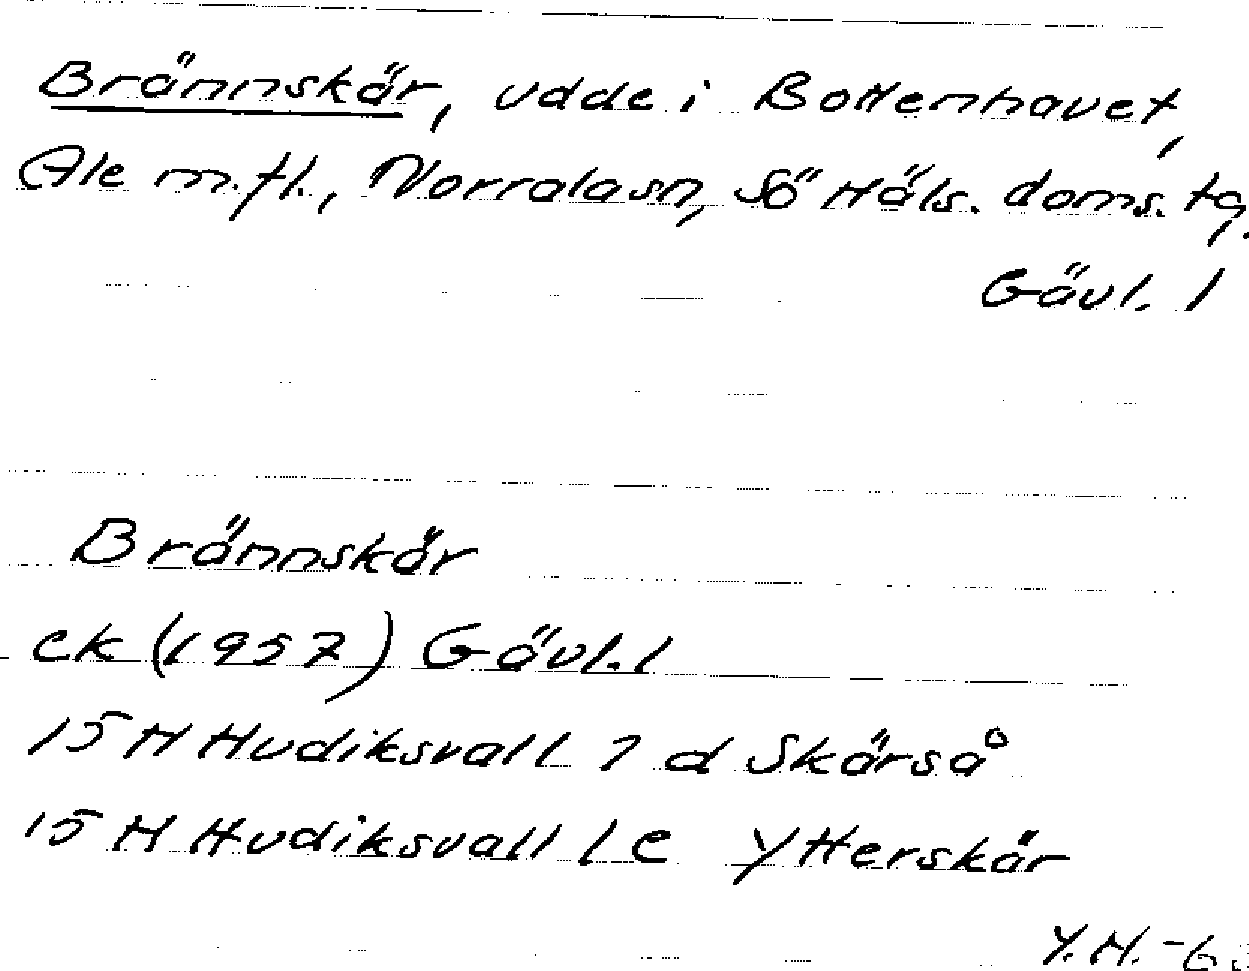 Brännskär, udde i Bottenhavet,
Ale m.fl., Norralasn, Sö Häls. doms. tg.
Gävl. l
Brännskär
ek (1957) Gävl. l
15 H Hudiksvall 7 d Skärså
15 H Hudiksvall 1 e Ytterskär
Y.H. -63